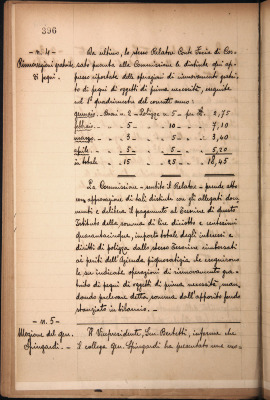 396
- n. 4 -
Rinnovazioni gratuite
di pegni.
Da ultimo, lo stesso Relatore Conte
sato presenta alla Commissione le distinte qui ap-
presso riportate delle operazioni di rinnovamento gratui-
to di pegni di oggetti di prima necessità, eseguite
nel 1° quadrimestre del corrente anno:
gennaio. Pegni n. 2 - Polizze n. 5 - per £. 2,75
febbraio " 5 " 10 " 7,10
marzo " 3 " 5 " 3,40
aprile " 5 " 5 " 5,20
in totale 15 25 18,45
La Commissione - sentito il Relatore - prende atto
con approvazione di tali distinte con gli allegati docu-
menti e delibera il pagamento al Cassiere di questo
Istituto della somma di lire diciotto e centesimi
quarantacinque, importo totale degli interessi e
diritti di polizza dallo stesso Cassiere rimborsati
ai periti dell'Azienda pignoratizia che eseguirono
le su indicate operazioni di rinnovamento gra-
tuito di pegni di oggetti di prima necessità, man-
dando prelevare detta somma dall'apposito fondo
stanziato in bilancio. -
- n. 5 -
Mozione del gen.
Spingardi. -
Il Vicepresidente, Sen. Bertetti, informa che
il collega Gen. Spingardi ha presentato una mo-